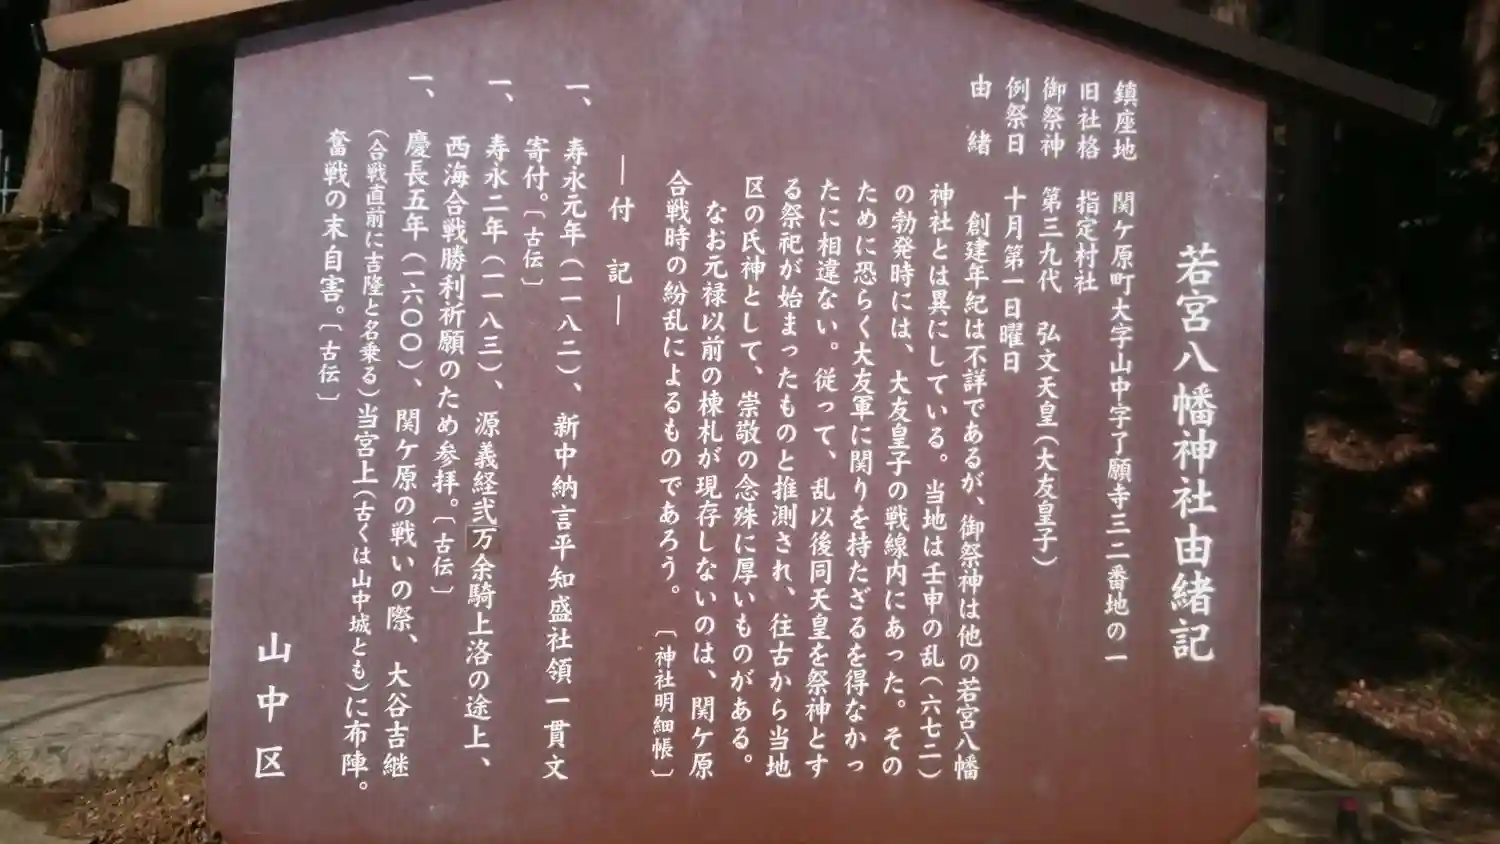 若宮八幡神社由緒記
鎮座地 関ケ原町大字山中字了願寺三二番地の一
旧社格 指定村社
御祭神 第三九代 弘文天皇（大友皇子）
例祭日 十月第一日曜日
由緒 創建年紀は不詳であるが、御祭神は他の若宮八幡
神社とは異にしている。当地は壬申の乱（六七二）
の勃発時には、大友皇子の戦線内にあった。その
ために恐らく大友軍に関りを持たざるを得なかっ
たに相違ない。従って、乱以後同天皇を祭神とす
る祭祀が始まったものと推測され、往古から当地
区の氏神として、崇敬の念殊に厚いものがある。
なお元禄以前の棟札が現存しないのは、関ケ原
合戦時の紛乱によるものであろう。〔神社明細帳〕
―付記―
一、寿永元年（一一八二）、新中納言平知盛社領一貫文
寄付。〔古伝〕
一、寿永二年（一一八三）、源義経弐万余騎上洛の途上、
西海合戦勝利祈願のため参拝。〔古伝〕
一、慶長五年（一六〇〇）、関ケ原の戦いの際、大谷吉継
（合戦直前に吉隆と名乗る）当宮上（古くは山中城とも）に布陣。
奮戦の末自害。〔古伝〕
山中区